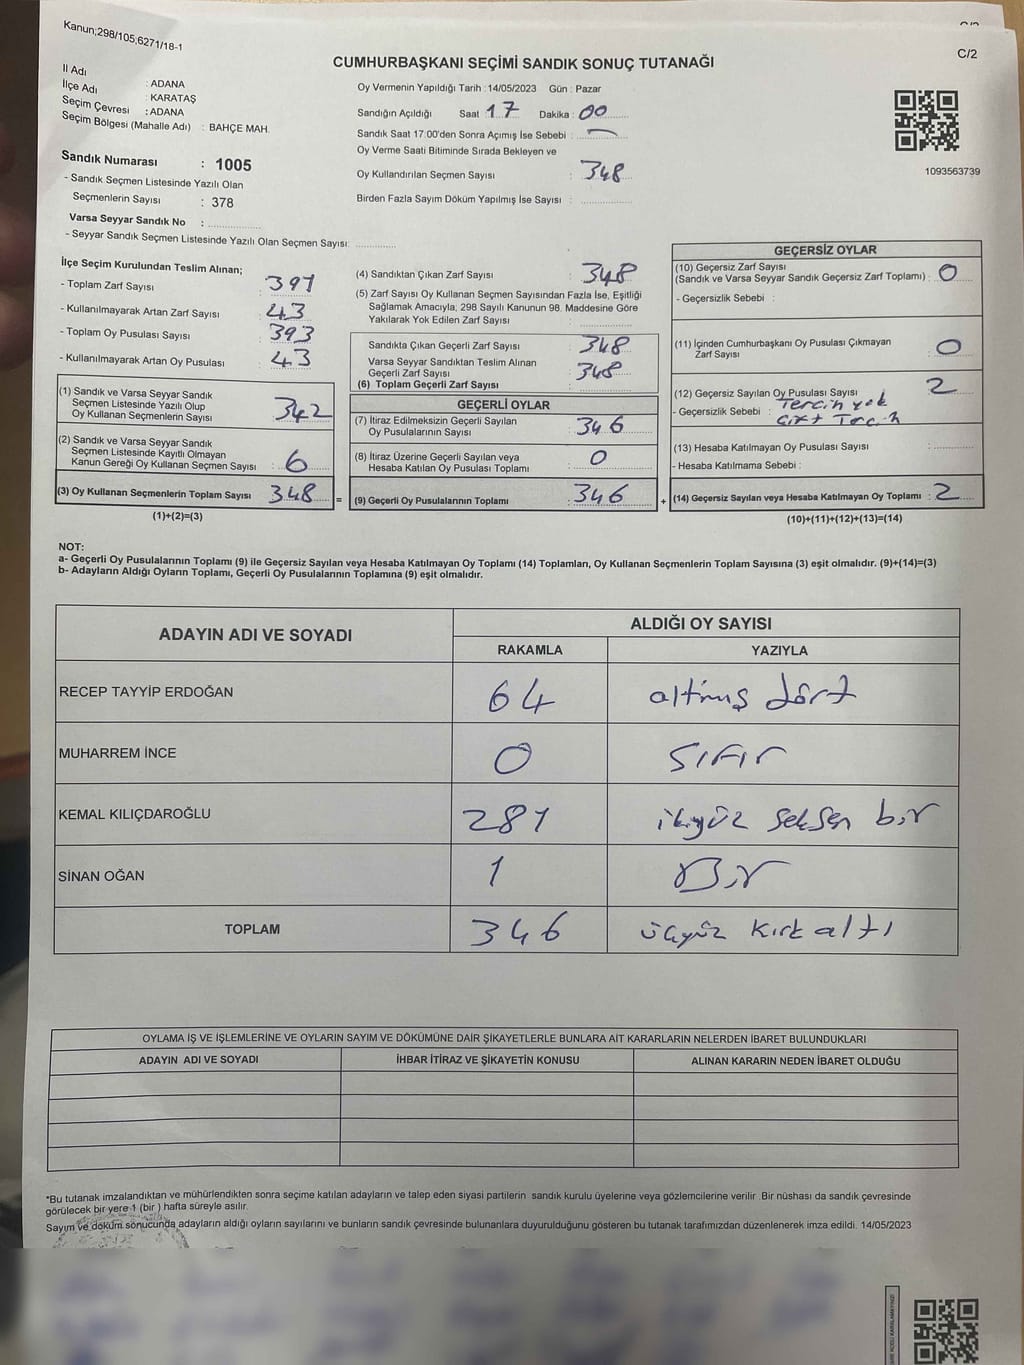 Kanun;298/105;6271/18-1
C/2
CUMHURBAŞKANI SEÇİMİ SANDIK SONUÇ TUTANAĞI
İl Adı
İlçe Adı : ADANA
Seçim Çevresi : KARATAŞ
Seçim Bölgesi (Mahalle Adı) : ADANA
: BAHÇE MAH.
Sandık Numarası : 1005
- Sandık Seçmen Listesinde Yazılı Olan
Seçmenlerin Sayısı : 378
Varsa Seyyar Sandık No :
- Seyyar Sandık Seçmen Listesinde Yazılı Olan Seçmen Sayısı:
Oy Vermenin Yapıldığı Tarih : 14/05/2023 Gün : Pazar
Sandığın Açıldığı Saat 17 Dakika : 00
Sandık Saat 17:00'den Sonra Açımış İse Sebebi : —
Oy Verme Saati Bitiminde Sırada Bekleyen ve
Oy Kullandırılan Seçmen Sayısı : 348
Birden Fazla Sayım Döküm Yapılmış İse Sayısı :
1093563739
İlçe Seçim Kurulundan Teslim Alınan;
- Toplam Zarf Sayısı : 391
- Kullanılmayarak Artan Zarf Sayısı : 43
- Toplam Oy Pusulası Sayısı : 393
- Kullanılmayarak Artan Oy Pusulası : 43
(1) Sandık ve Varsa Seyyar Sandık
Seçmen Listesinde Yazılı Olup
Oy Kullanan Seçmenlerin Sayısı : 342
(2) Sandık ve Varsa Seyyar Sandık
Seçmen Listesinde Kayıtlı Olmayan
Kanun Gereği Oy Kullanan Seçmen Sayısı : 6
(3) Oy Kullanan Seçmenlerin Toplam Sayısı 348 =
(1)+(2)=(3)
(4) Sandıktan Çıkan Zarf Sayısı : 348
(5) Zarf Sayısı Oy Kullanan Seçmen Sayısından Fazla İse, Eşitliği
Sağlamak Amacıyla, 298 Sayılı Kanunun 98. Maddesine Göre
Yakılarak Yok Edilen Zarf Sayısı :
Sandıkta Çıkan Geçerli Zarf Sayısı : 348
Varsa Seyyar Sandıktan Teslim Alınan
Geçerli Zarf Sayısı : 348
(6) Toplam Geçerli Zarf Sayısı :
GEÇERLİ OYLAR
(7) İtiraz Edilmeksizin Geçerli Sayılan
Oy Pusulalarının Sayısı : 346
(8) İtiraz Üzerine Geçerli Sayılan veya
Hesaba Katılan Oy Pusulası Toplamı : 0
(9) Geçerli Oy Pusulalarının Toplamı : 346 +
GEÇERSİZ OYLAR
(10) Geçersiz Zarf Sayısı
(Sandık ve Varsa Seyyar Sandık Geçersiz Zarf Toplamı) : 0
- Geçersizlik Sebebi :
(11) İçinden Cumhurbaşkanı Oy Pusulası Çıkmayan
Zarf Sayısı : 0
(12) Geçersiz Sayılan Oy Pusulası Sayısı : 2
- Geçersizlik Sebebi : Tercih yok
Çift Tercih
(13) Hesaba Katılmayan Oy Pusulası Sayısı :
- Hesaba Katılmama Sebebi :
(14) Geçersiz Sayılan veya Hesaba Katılmayan Oy Toplamı : 2
(10)+(11)+(12)+(13)=(14)
NOT:
a- Geçerli Oy Pusulalarının Toplamı (9) ile Geçersiz Sayılan veya Hesaba Katılmayan Oy Toplamı (14) Toplamları, Oy Kullanan Seçmenlerin Toplam Sayısına (3) eşit olmalıdır. (9)+(14)=(3)
b- Adayların Aldığı Oyların Toplamı, Geçerli Oy Pusulalarının Toplamına (9) eşit olmalıdır.
ADAYIN ADI VE SOYADI ALDIĞI OY SAYISI
RAKAMLA YAZIYLA
RECEP TAYYİP ERDOĞAN 64 altmış dört
MUHARREM İNCE 0 sıfır
KEMAL KILIÇDAROĞLU 281 ikiyüz seksen bir
SİNAN OĞAN 1 Bir
TOPLAM 346 üçyüz kırk altı
OYLAMA İŞ VE İŞLEMLERİNE VE OYLARIN SAYIM VE DÖKÜMÜNE DAİR ŞİKAYETLERLE BUNLARA AİT KARARLARIN NELERDEN İBARET BULUNDUKLARI
ADAYIN ADI VE SOYADI İHBAR İTİRAZ VE ŞİKAYETİN KONUSU ALINAN KARARIN NEDEN İBARET OLDUĞU
*Bu tutanak imzalandıktan ve mühürlendikten sonra seçime katılan adayların ve talep eden siyasi partilerin sandık kurulu üyelerine veya gözlemcilerine verilir .Bir nüshası da sandık çevresinde
görülecek bir yere 1 (bir ) hafta süreyle asılır.
Sayım ve döküm sonucunda adayların aldığı oyların sayılarını ve bunların sandık çevresinde bulunanlara duyurulduğunu gösteren bu tutanak tarafımızdan düzenlenerek imza edildi. 14/05/2023